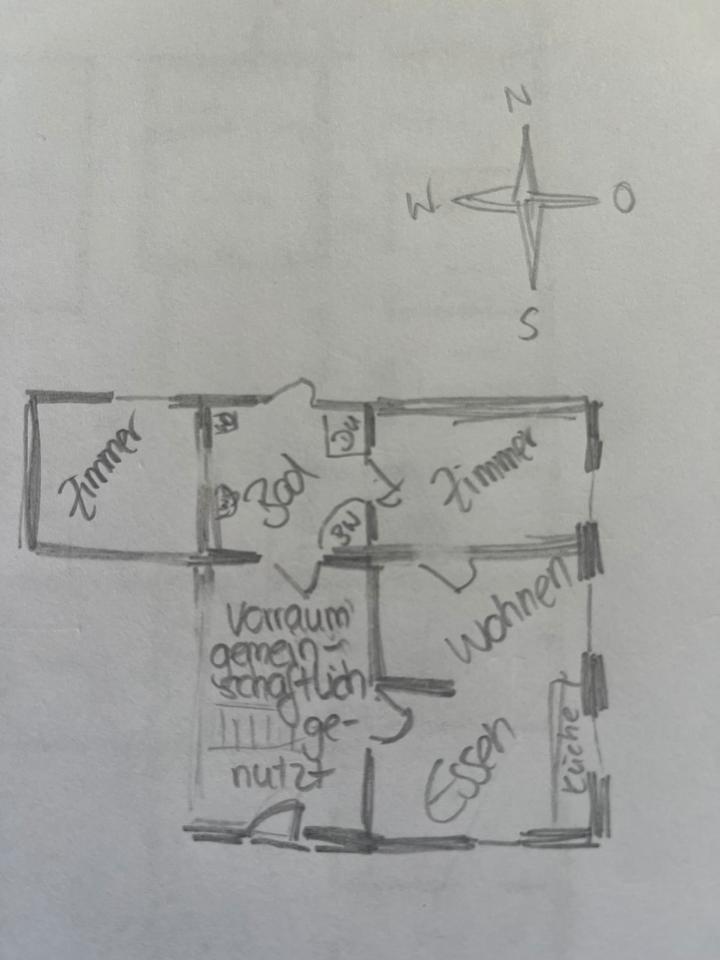 N
W
O
S
Zimmer
Du
Bad
BW
Zimmer
Vorraum
gemein-
schaftlich
ge-
nutzt
Wohnen
Essen
Küche